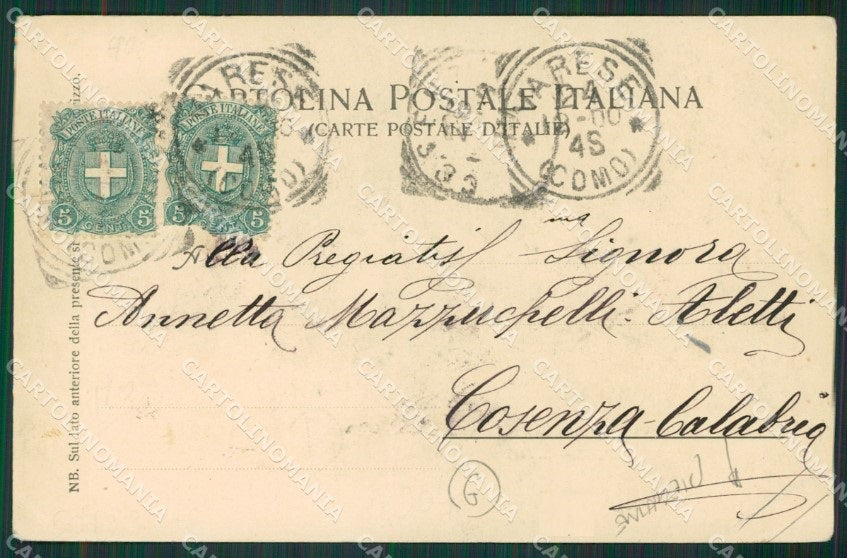 CARTOLINA POSTALE ITALIANA
(CARTE POSTALE D'ITALIE)
VARESE
(COMO)
4S
VARESE
18-00
4S
(COMO)
POSTE ITALIANE
5 CENT. 5
POSTE ITALIANE
5 5
Alla Pregiatis ma Signora
Annetta Mazzuchelli-Aletti
Cosenza-Calabria
NB. Sul lato anteriore della presente si
G
CARTOLINOMANIA